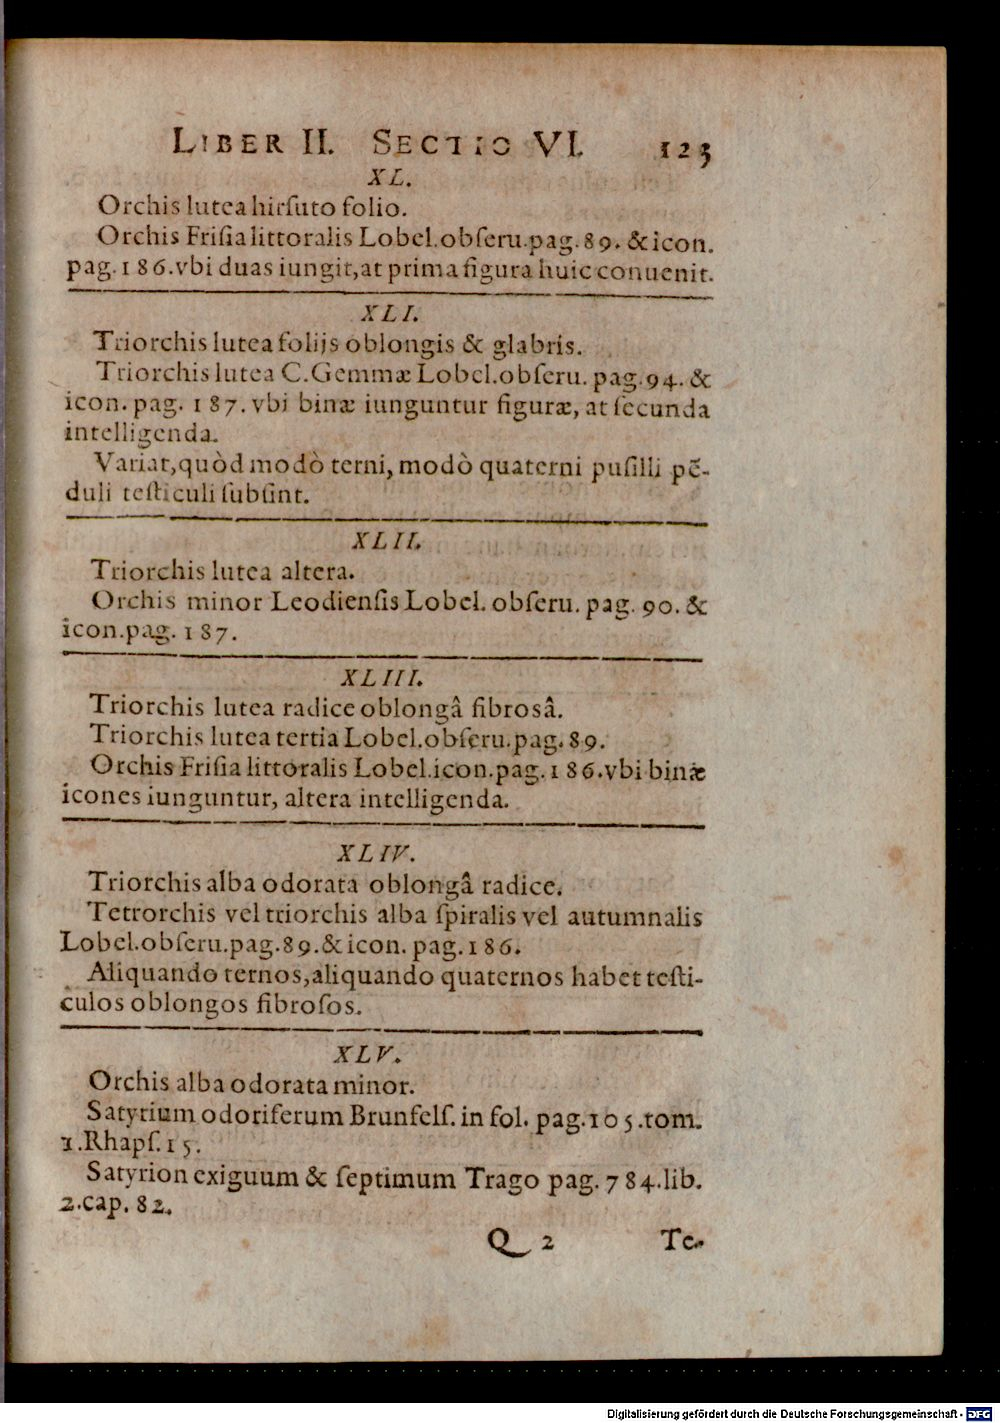 LIBER II. SECTIO VI. 123
XL.
Orchis lutea hirſuto folio.
Orchis Friſia littoralis Lobel.obſeru.pag.89. & icon.
pag.186.vbi duas iungit,at prima figura huic conuenit.
XLI.
Triorchis lutea folijs oblongis & glabris.
Triorchis lutea C.Gemmæ Lobel.obſeru. pag.94. &
icon. pag. 187. vbi binæ iunguntur figuræ, at ſecunda
intelligenda.
Variat,quòd modò terni, modò quaterni puſilli pẽ-
duli teſticuli ſubſint.
XLII.
Triorchis lutea altera.
Orchis minor Leodienſis Lobel. obſeru. pag. 90. &
icon.pag. 187.
XLIII.
Triorchis lutea radice oblongâ fibrosâ.
Triorchis lutea tertia Lobel.obſeru.pag.89.
Orchis Friſia littoralis Lobel.icon.pag.186.vbi binæ
icones iunguntur, altera intelligenda.
XLIV.
Triorchis alba odorata oblongâ radice.
Tetrorchis vel triorchis alba ſpiralis vel autumnalis
Lobel.obſeru.pag.89.& icon. pag.186.
Aliquando ternos,aliquando quaternos habet teſti-
culos oblongos fibroſos.
XLV.
Orchis alba odorata minor.
Satyrium odoriferum Brunfelſ. in fol. pag.105.tom.
1.Rhapſ.15.
Satyrion exiguum & ſeptimum Trago pag. 784.lib.
2.cap. 82.
Q 2 Te-
Digitalisierung gefördert durch die Deutsche Forschungsgemeinschaft - DFG